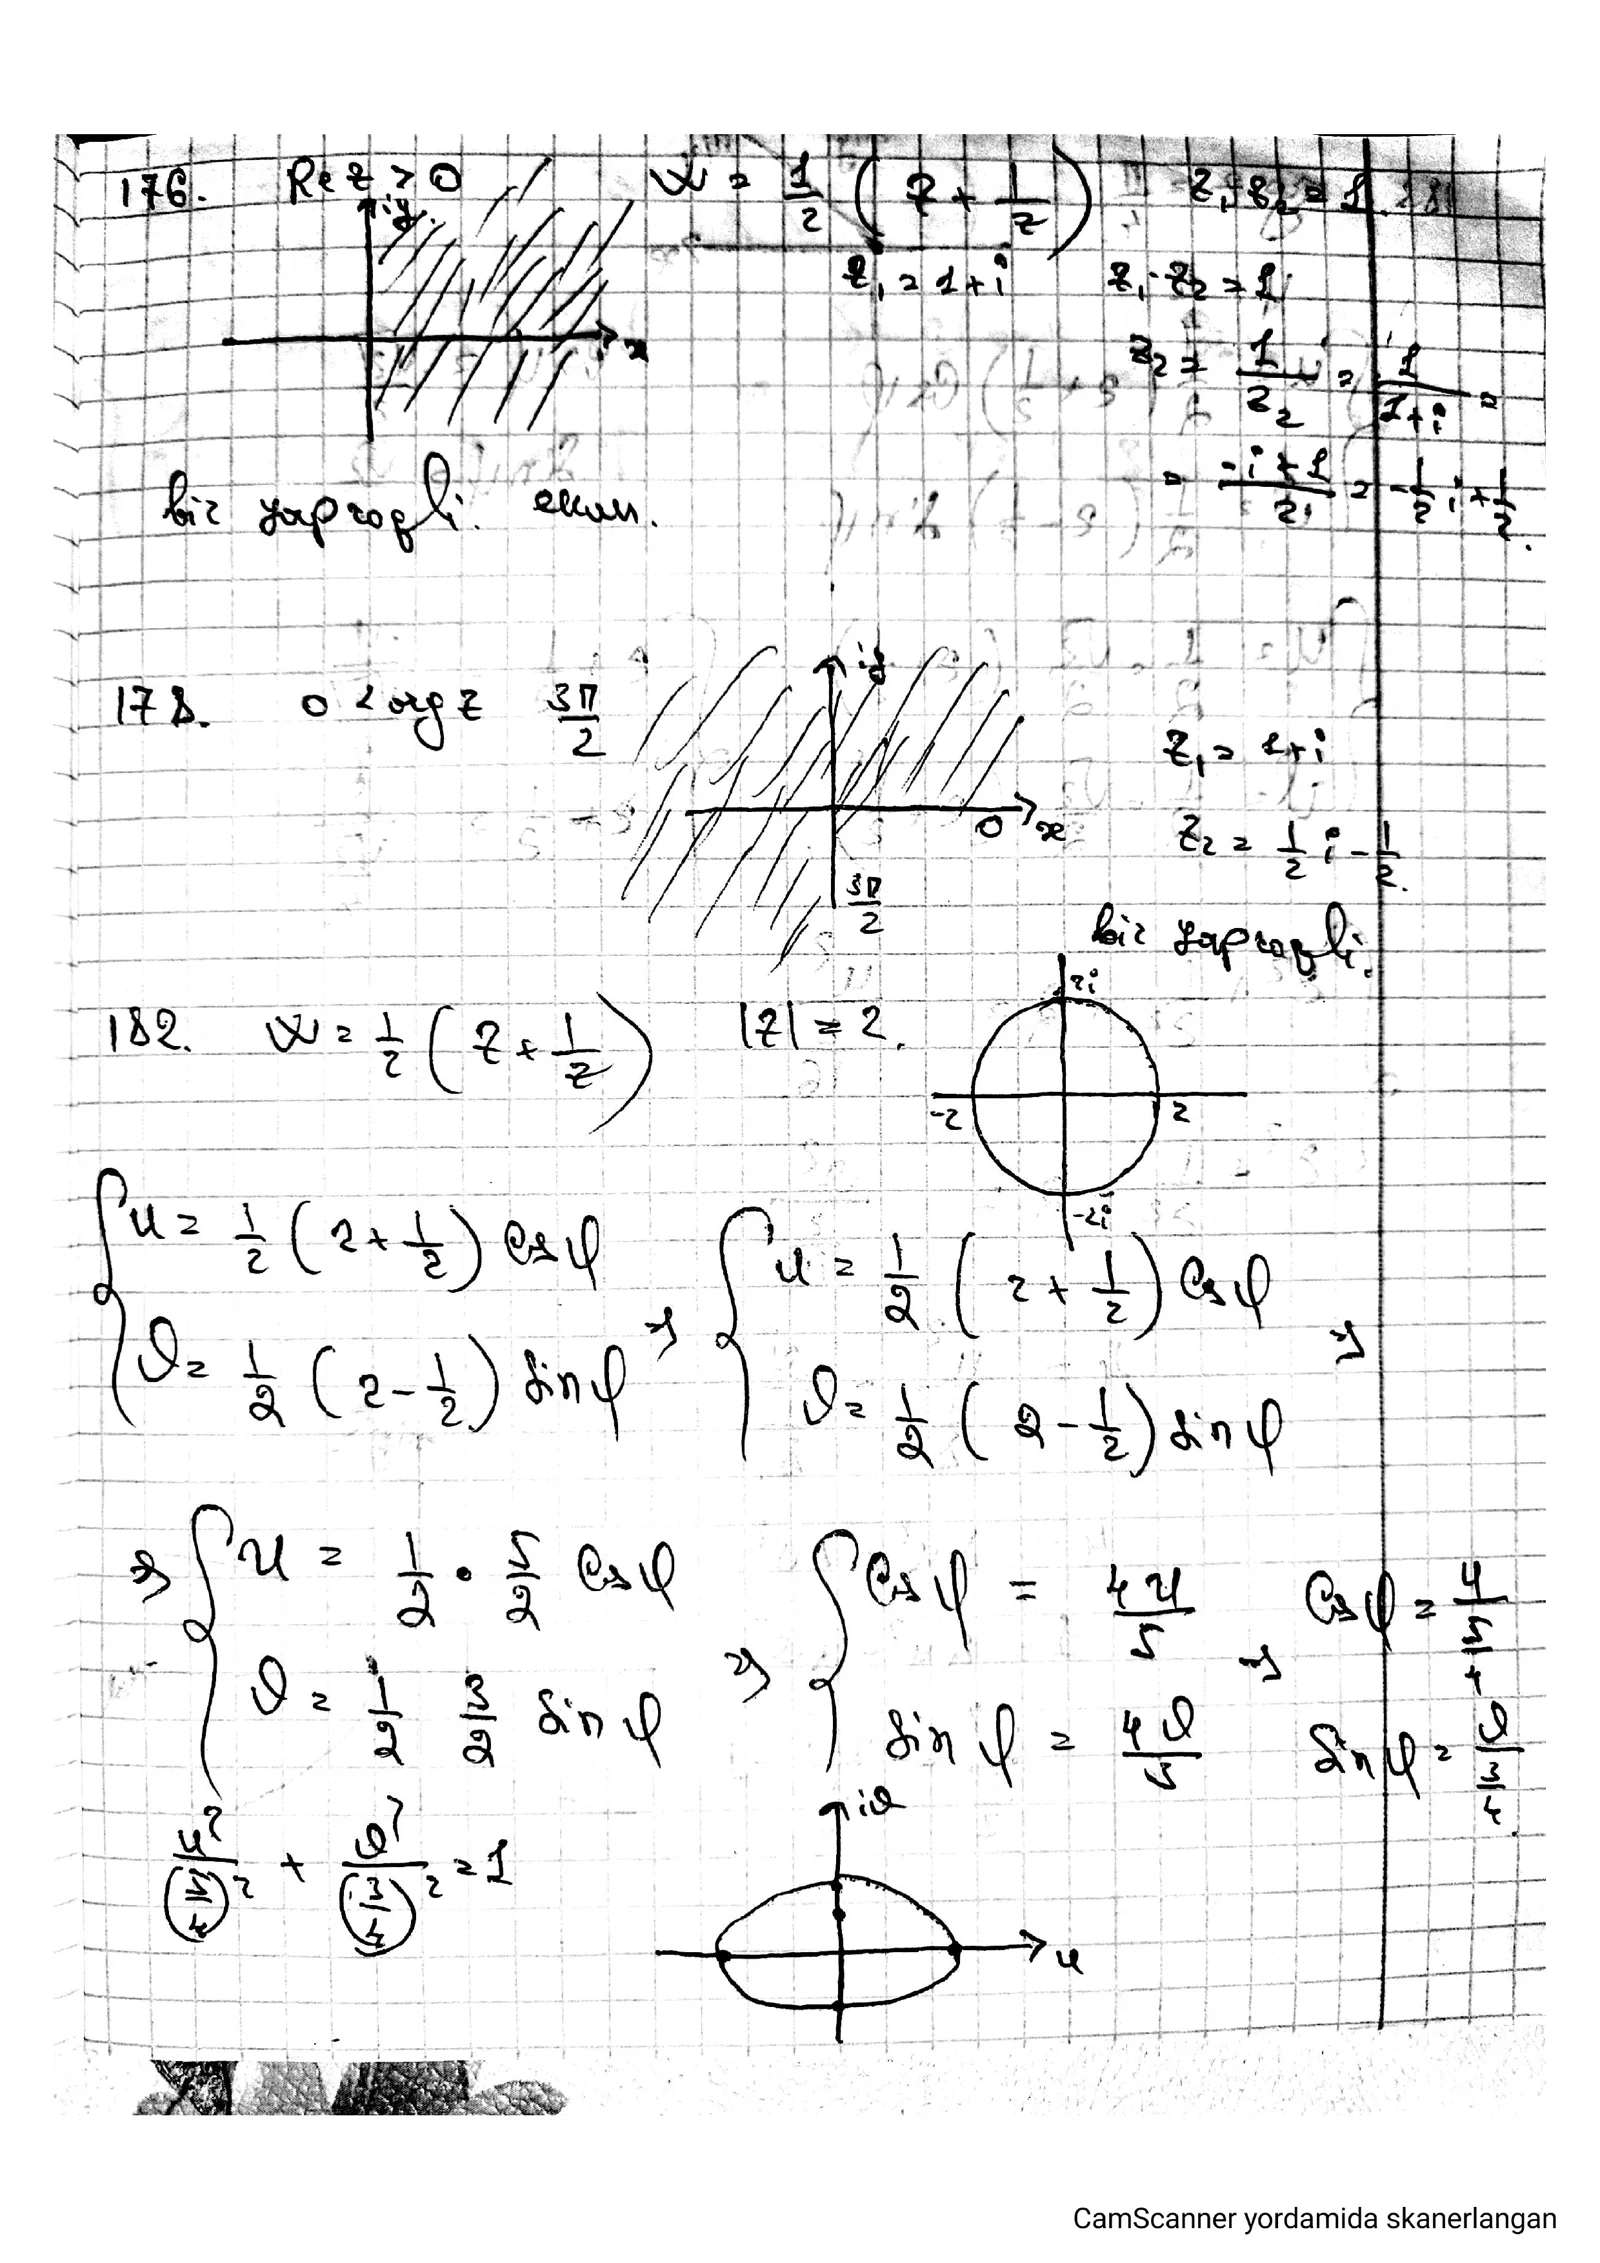 176. Re z > 0 w = 1/2 (z + 1/z) z₁ z₂ = 1.
iy
z₁ = 1+i z₁·z₂ = 1
x
z₂ = 1/z₂ = 1/(1+i) =
= (-i+1)/2 = -1/2 i + 1/2.
bir yaproqli ekan.
178. 0 < arg z 3π/2
iy
z₁ = 1+i
0 x
z₂ = 1/2 i - 1/2.
3π/2
bir yaproqli.
182. w = 1/2 (z + 1/z) |z| = 2.
2i
-2 2
-2i
{ u = 1/2 (2 + 1/2) cos φ
ϑ = 1/2 (2 - 1/2) sin φ ⇒
{ u = 1/2 (2 + 1/2) cos φ
ϑ = 1/2 (2 - 1/2) sin φ ⇒
⇒ { u = 1/2 · 5/2 cos φ
ϑ = 1/2 3/2 sin φ ⇒
{ cos φ = 4u/5
sin φ = 4ϑ/5 ⇒
cos φ = u/(5/4)
sin φ = ϑ/(3/4).
u²/(5/4)² + ϑ²/(3/4)² = 1
iϑ
u
CamScanner yordamida skanerlangan